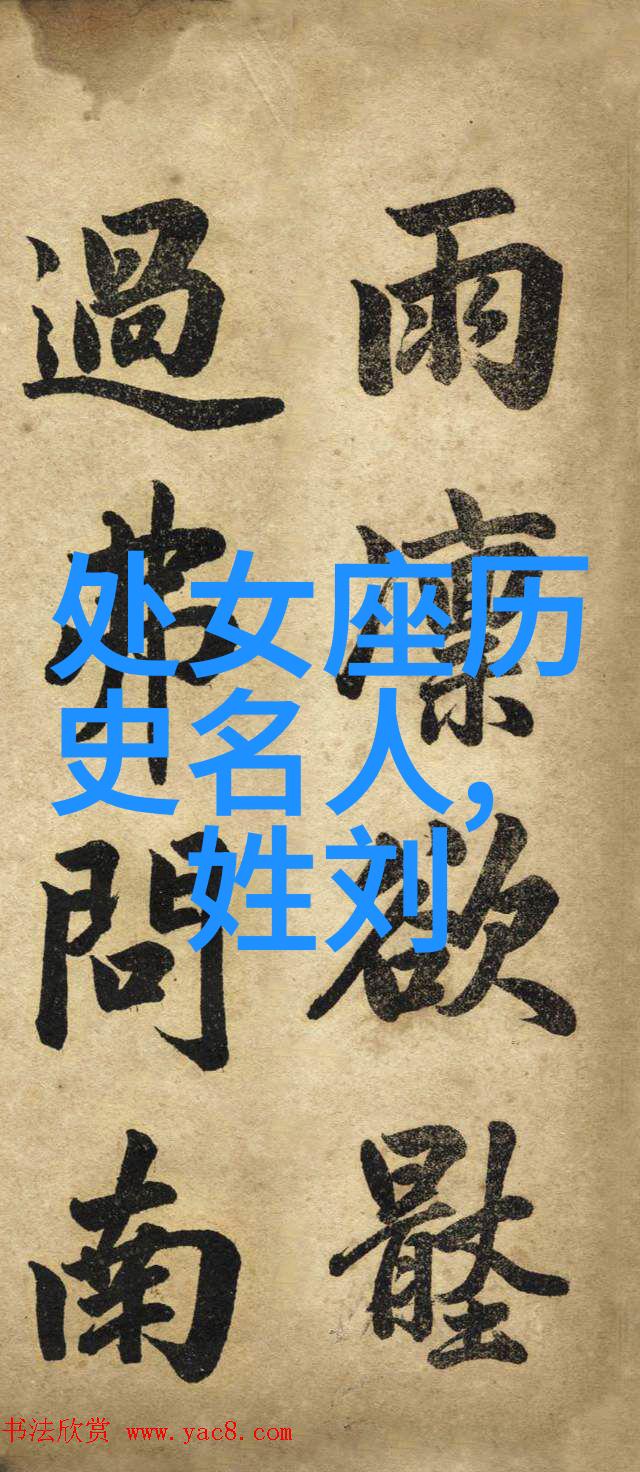 雨
欲
過弗問南
处女座历
史名人，
姓刘
书法欣赏 www.yac8.com